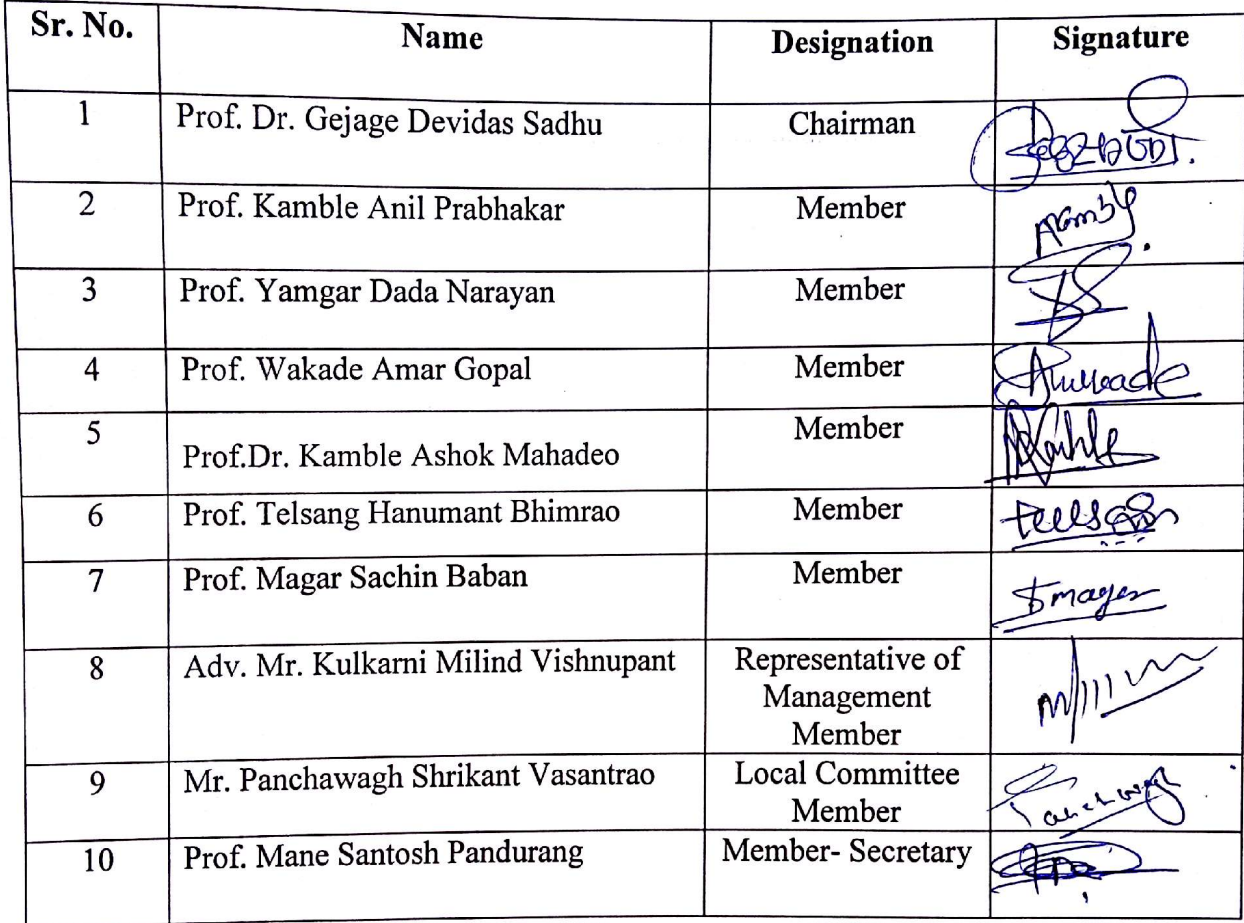 Sr. No. Name Designation Signature
1 Prof. Dr. Gejage Devidas Sadhu Chairman
2 Prof. Kamble Anil Prabhakar Member
3 Prof. Yamgar Dada Narayan Member
4 Prof. Wakade Amar Gopal Member
5 Prof.Dr. Kamble Ashok Mahadeo Member
6 Prof. Telsang Hanumant Bhimrao Member
7 Prof. Magar Sachin Baban Member
8 Adv. Mr. Kulkarni Milind Vishnupant Representative of
Management
Member
9 Mr. Panchawagh Shrikant Vasantrao Local Committee
Member
10 Prof. Mane Santosh Pandurang Member- Secretary